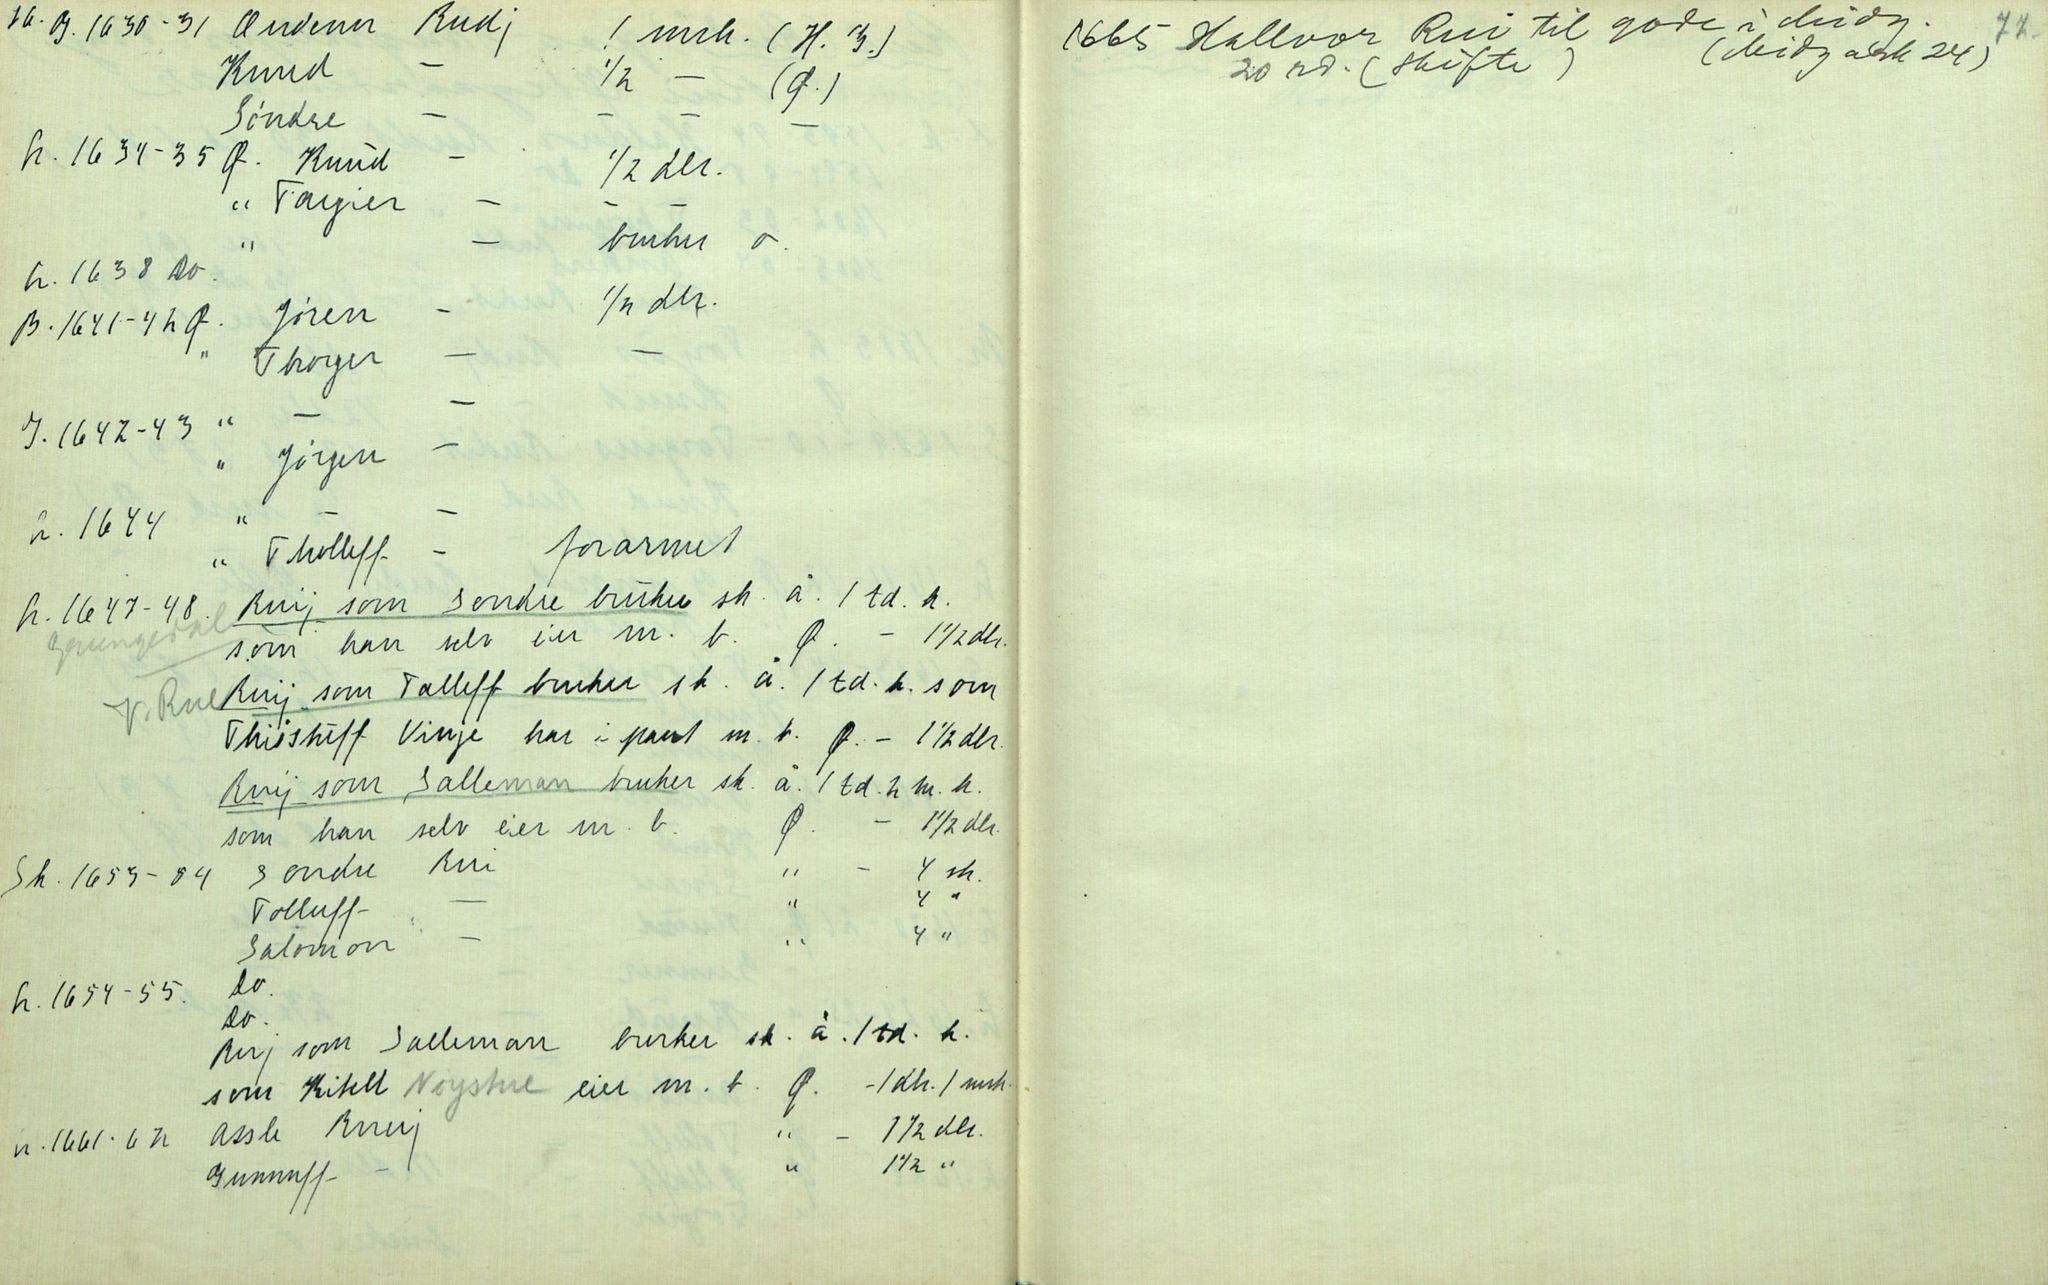 Sk. B. 1630-31 Andenn Rudj 1 mrk. (H. G.)
Knud - 1/2 - (Q.)
Sóndre - - - -
h. 1634-35 Q. Knud - 1/2 dlr.
" Targier - - -
" - bruker o.
h. 1638 Do.
B. 1641-42 Q. Jóren - 1/2 dlr.
" Thorger - -
J. 1642-43 " - -
" Jórgen -
h. 1644 " - -
" Tholleff - forarmet
h. 1647-48. Ruij som Sondre bruker sk. å. 1 td. k.
Grungedal
som han selv eier m. b. Q. - 1 1/2 dlr.
Ruij som Talleff bruker sk. å. 1 td. k. som
v. Rue
Thiostuff Vinje har i pant m. b. Q. - 1 1/2 dlr.
Ruij som Salleman bruker sk. å. 1 td. 2 m. k.
som han selv eier m. b. Q. - 1 1/2 dlr.
Sk. 1653-54 Sondre Rui " - 4 sk.
Tolluff - " 4 "
Salomon - " 4 "
h. 1654-55. Do.
Do.
Ruj som Salleman bruker sk. å. 1 td. k.
som Kitell Nöystue eier m. b. Q. - 1 dlr. 1 mrk.
h. 1661-62 Assle Ruuij " - 1 1/2 dlr.
Gunnuff - " 1 1/2 "
1665 Hallvor Rui til gode i dødg.
20 rd. (Skifte) 
77.